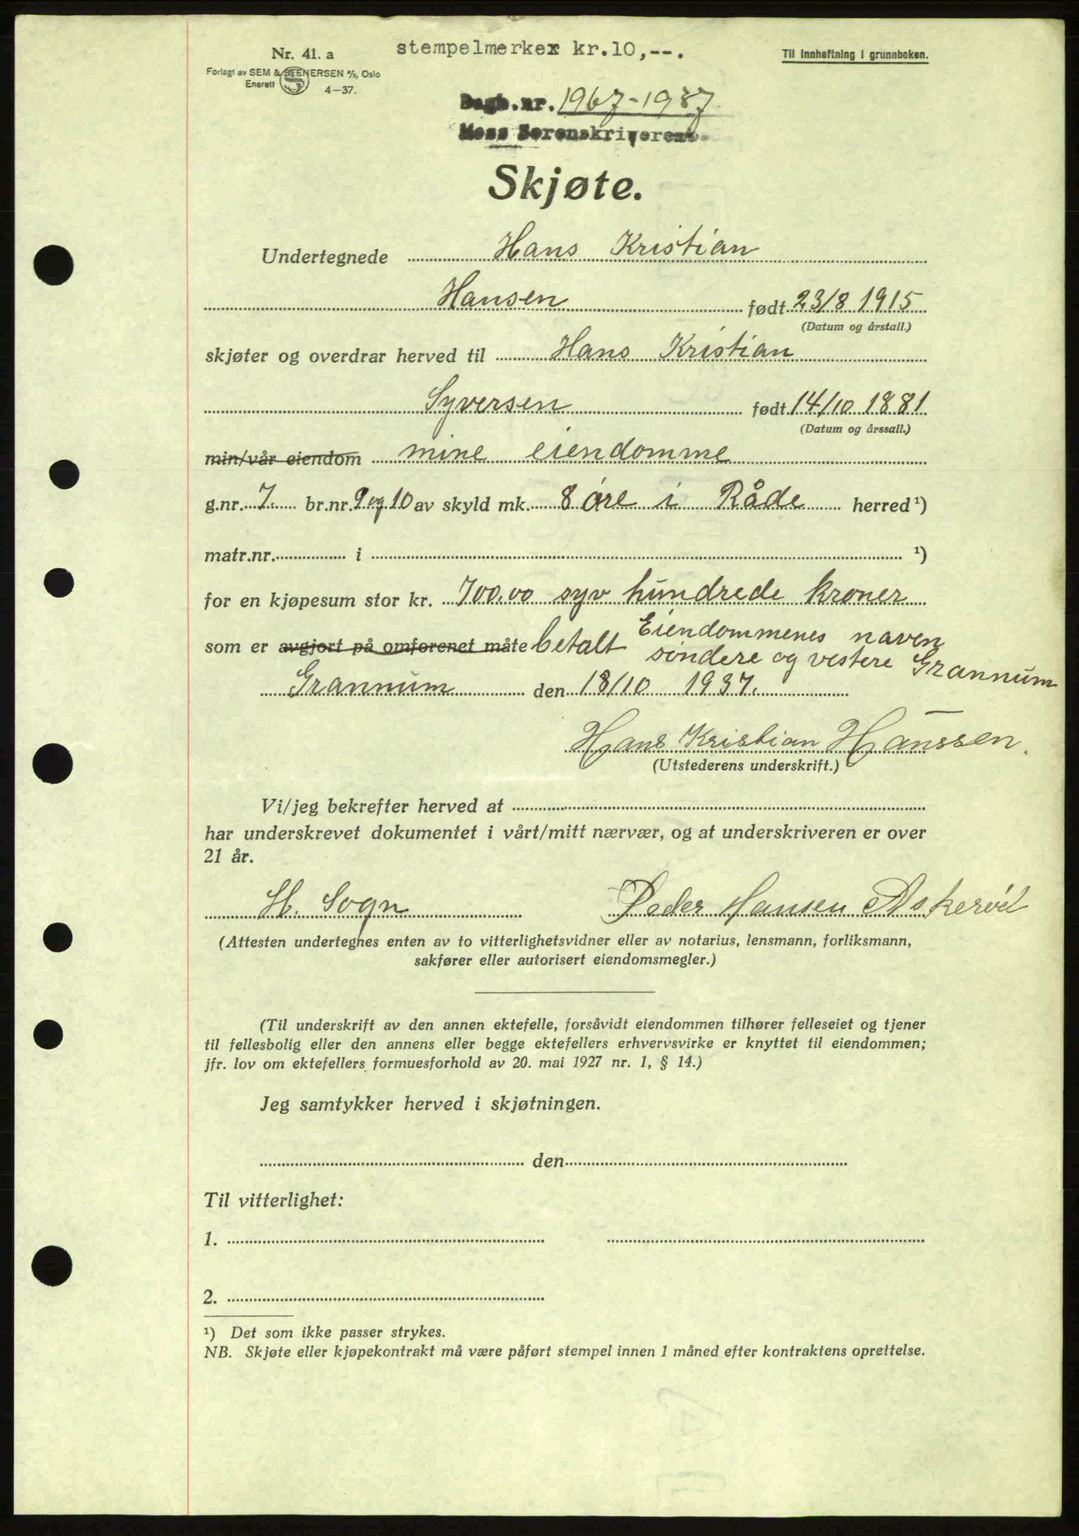 Nr. 41. a
stempelmerker kr.10,--.
Til innheftning i grunnboken.
Forlagt av SEM & STENERSEN A/S, Oslo
Enerett
4-37.
Dagb.nr. 1967-1937
Moss Sorenskriverembe
Skjøte.
Undertegnede Hans Kristian
Hansen født 23/8 1915
(Datum og årstall.)
skjøter og overdrar herved til Hans Kristian
Syversen født 14/10 1881
(Datum og årssall.)
min/vår eiendom mine eiendomme
g.nr. 7. br.nr. 9 og 10 av skyld mk. 8 øre i Råde herred ¹)
matr.nr. i ¹)
for en kjøpesum stor kr. 700.00 syv hundrede kroner
som er avgjort på omforenet måte betalt Eiendommenes naven
søndere og vestere Grannum
Grannum den 18/10 1937.
Hans Kristian Hanssen.
(Utstederens underskrift.)
Vi/jeg bekrefter herved at
har underskrevet dokumentet i vårt/mitt nærvær, og at underskriveren er over
21 år.
H. Sogn Peder Hansen Askerød
(Attesten undertegnes enten av to vitterlighetsvidner eller av notarius, lensmann, forliksmann,
sakfører eller autorisert eiendomsmegler.)
(Til underskrift av den annen ektefelle, forsåvidt eiendommen tilhører felleseiet og tjener
til fellesbolig eller den annens eller begge ektefellers erhvervsvirke er knyttet til eiendommen;
jfr. lov om ektefellers formuesforhold av 20. mai 1927 nr. 1, § 14.)
Jeg samtykker herved i skjøtningen.
den
Til vitterlighet:
1.
2.
¹) Det som ikke passer strykes.
NB. Skjøte eller kjøpekontrakt må være påført stempel innen 1 måned efter kontraktens oprettelse.